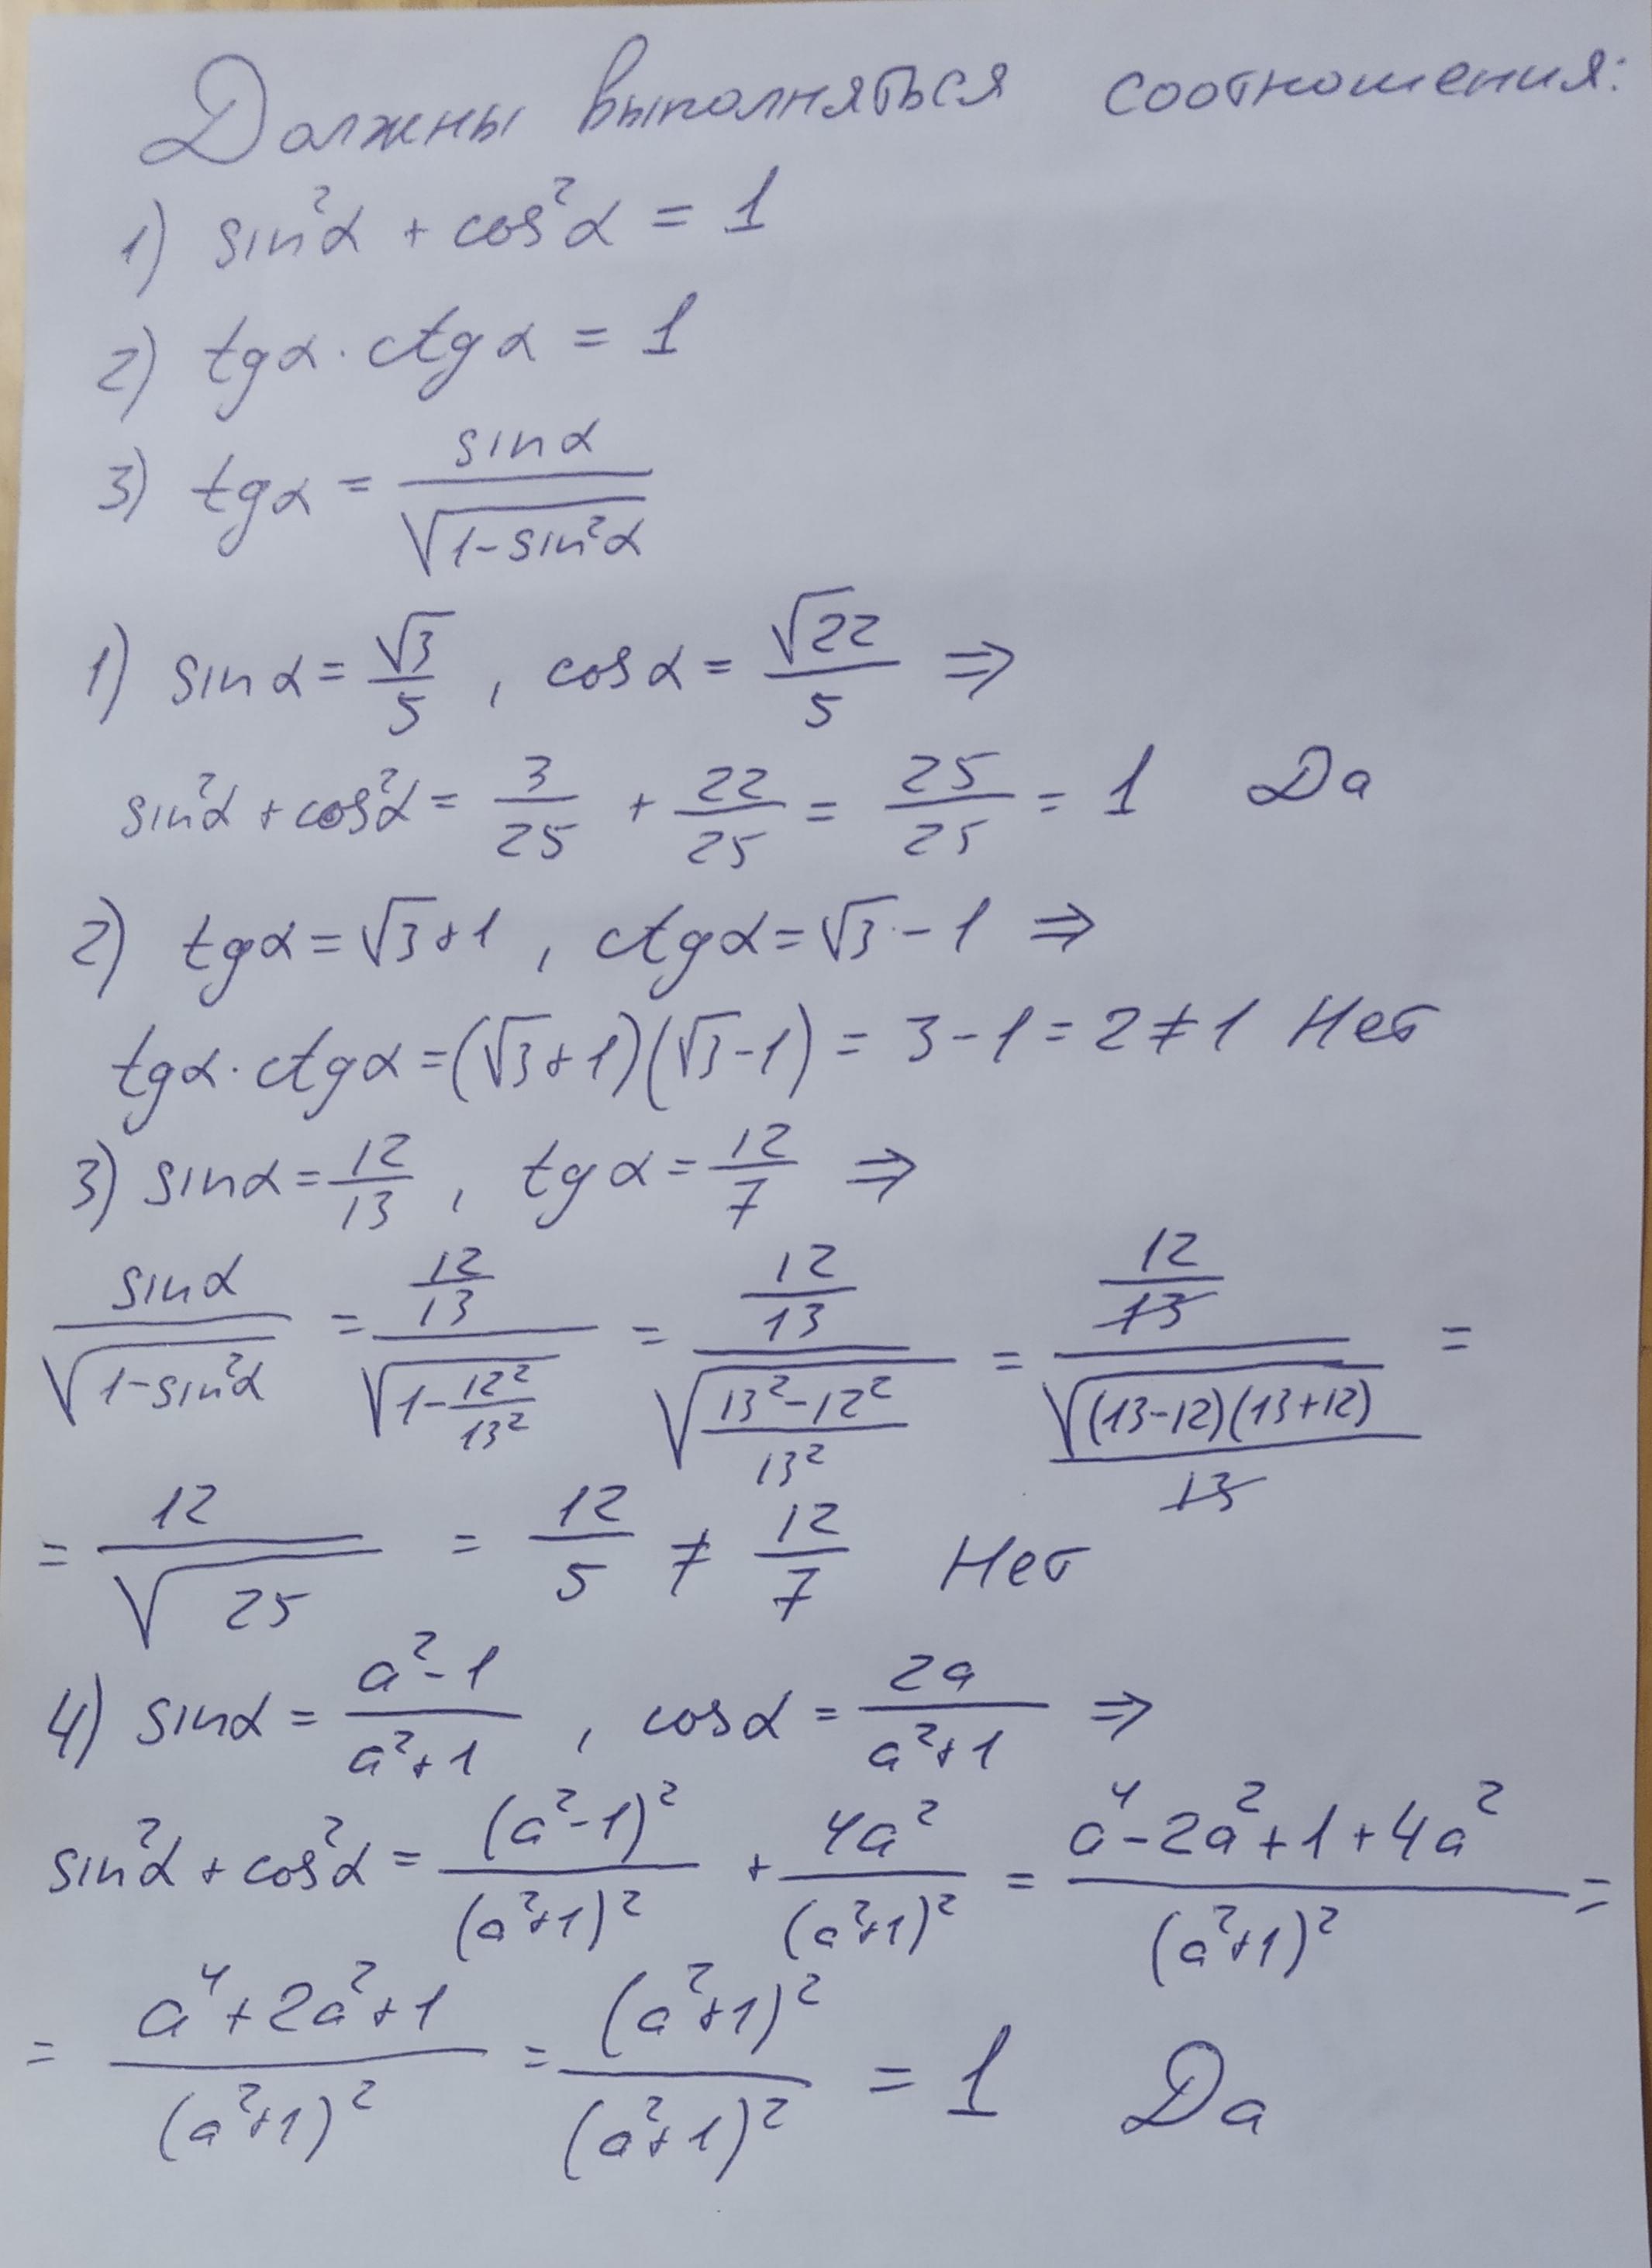 Должны выполняться соотношения:
1) sin²α + cos²α = 1
2) tgα · ctgα = 1
3) tgα = sinα / √(1-sin²α)
1) sinα = √3/5 , cosα = √22/5 ⇒
sin²α + cos²α = 3/25 + 22/25 = 25/25 = 1 Да
2) tgα = √3+1 , ctgα = √3-1 ⇒
tgα · ctgα = (√3+1)(√3-1) = 3-1 = 2 ≠ 1 Нет
3) sinα = 12/13 , tgα = 12/7 ⇒
sinα / √(1-sin²α) = (12/13) / √(1-12²/13²) = (12/13) / √((13²-12²)/13²) = (12/13) / (√((13-12)(13+12))/13) =
= 12/√25 = 12/5 ≠ 12/7 Нет
4) sinα = (a²-1)/(a²+1) , cosα = 2a/(a²+1) ⇒
sin²α + cos²α = (a²-1)²/(a²+1)² + 4a²/(a²+1)² = (a⁴-2a²+1+4a²)/(a²+1)² =
= (a⁴+2a²+1)/(a²+1)² = (a²+1)²/(a²+1)² = 1 Да